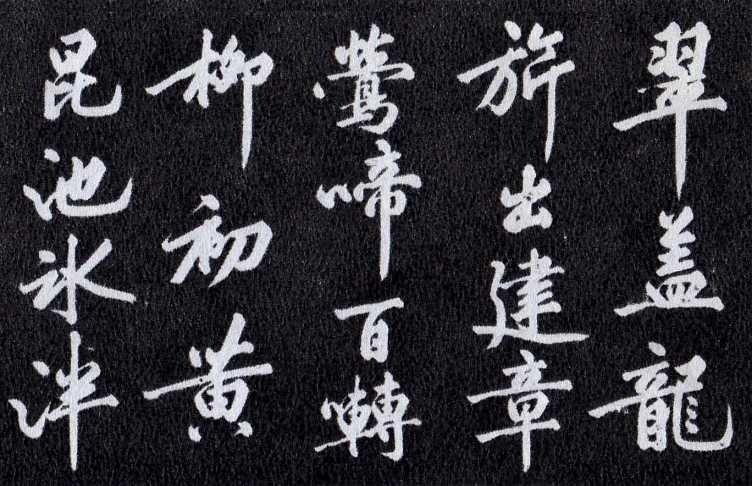 翠盖龍
旂出建章
鶯啼百囀
柳初黄
昆池氷泮